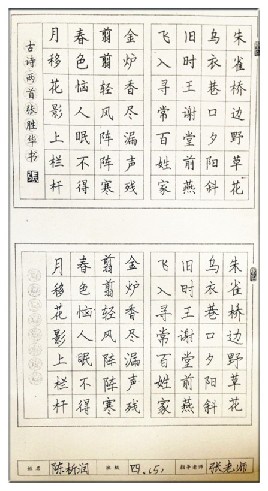 朱雀桥边野草花
乌衣巷口夕阳斜
旧时王谢堂前燕
飞入寻常百姓家
金炉香尽漏声残
翦翦轻风阵阵寒
春色恼人眠不得
月移花影上栏杆
古诗两首张胜华书
朱雀桥边野草花
乌衣巷口夕阳斜
旧时王谢堂前燕
飞入寻常百姓家
金炉香尽漏声残
翦翦轻风阵阵寒
春色恼人眠不得
月移花影上栏杆
姓名 陈析润 班级 四.(5) 指导老师 张老师